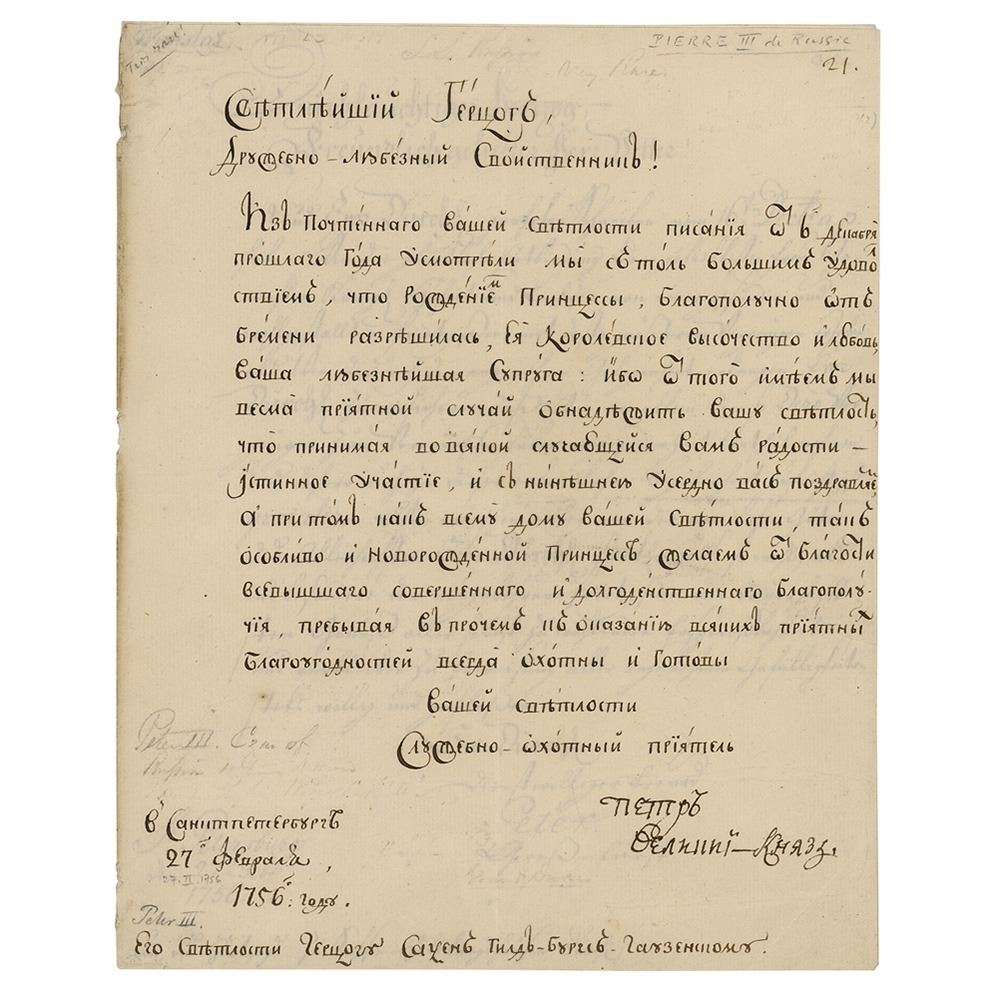 PIERRE III de Russie
Very Rare
21.
Свѣтлѣйшїй Ге́рцогъ,
Дружебно-любе́зный Сво́йственникъ!
Изъ Почте́ннаго ва́шей Свѣ́тлости писа́нїя ѿ 6 декабря
про́шлаго Го́да усмотрѣли мы съ то́ль большимъ удово
ствїемъ, что Рожде́нїемъ Принце́ссы, благополучно ѿтъ
бре́мени разрѣши́лась, Ея́ Короле́вское высочество и любовь
ва́ша любезнѣ́йшая Супру́га: и́бо ѿ того́ имѣ́емъ мы
весма́ прїя́тной слу́чай обнаде́жить ва́шу свѣ́тлость,
что̀ принима́я во вся́кой случа́ющейся ва́мъ ра́дости –
и́стинное уча́стїе, и съ ны́нѣшнею усе́рдно ва́съ поздравляе
а̀ при то́мъ ка́къ всему̀ до́му ва́шей Свѣ́тлости, та́къ
осо́бливо и новорожде́нной Принце́ссѣ, жела́емъ ѿ бла́гости
всевы́шшаго соверше́ннаго и долгоде́нственнаго благополу-
чїя, пребыва́я въ про́чемъ къ оказа́нїю вся́кихъ прїя́тны
благоуго́дностей всегда́ охо́тны и гото́вы
ва́шей свѣ́тлости
Служебно-охо́тный прїя́тель
Петръ
Великиї-Князь.
Peter III. Czar of
Russia
в Санктпетербургѣ
27го февраля,
27. II. 1756
1756го: году.
Peter III.
Его Свѣ́тлости Герцогу Саксенъ Гилдъ-бургсъ-гаузенскому.